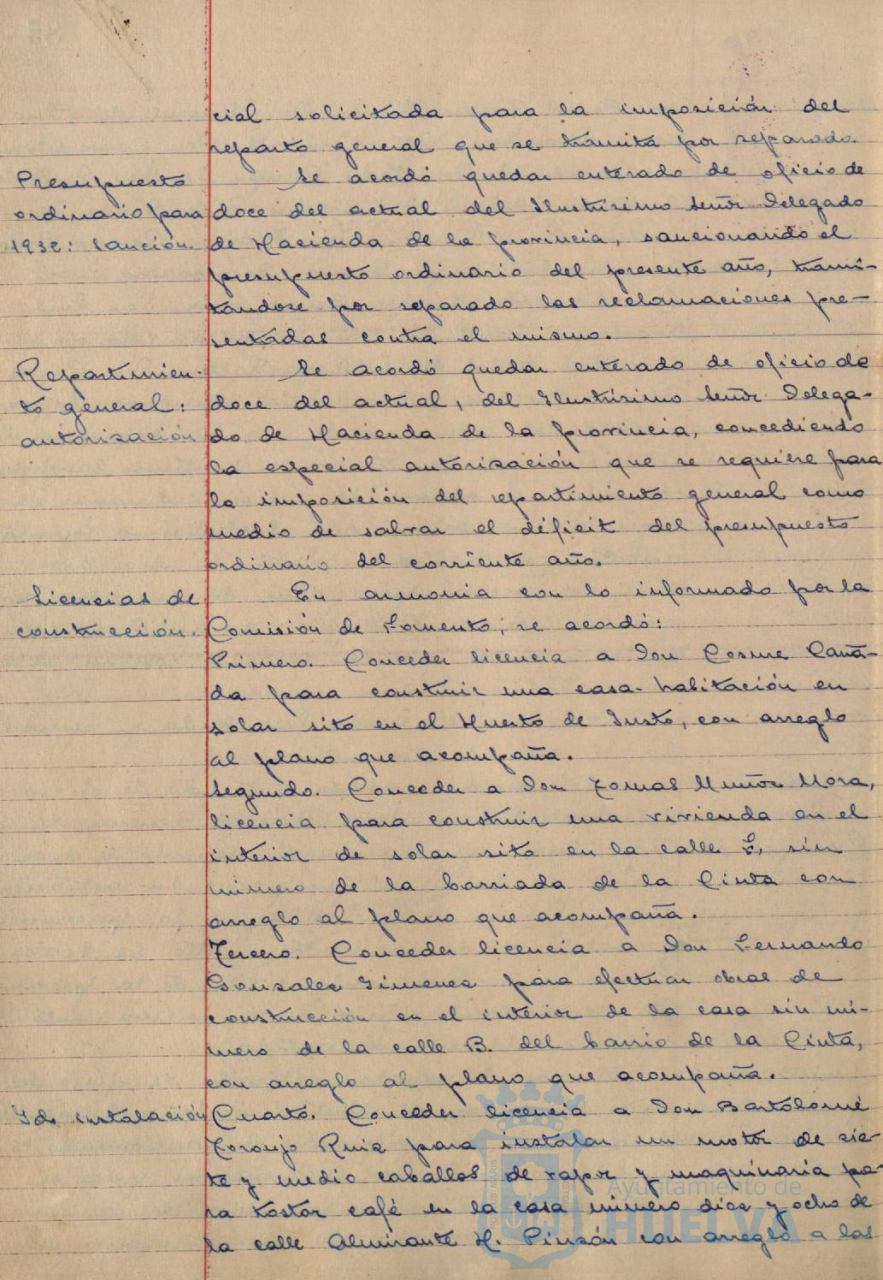 cial solicitada para la imposición del
reparto general que se tramita por separado.
Presupuesto
ordinario para
1932: Sanción.
Se acordó quedar enterado de oficio de
doce del actual del Ilustrísimo Señor Delegado
de Hacienda de la provincia, sancionando el
presupuesto ordinario del presente año, trami-
tándose por separado las reclamaciones pre-
sentadas contra el mismo.
Repartimien-
to general:
autorización
Se acordó quedar enterado de oficio de
doce del actual, del Ilustrísimo Señor Delega-
do de Hacienda de la provincia, concediendo
la especial autorización que se requiere para
la imposición del repartimiento general como
medio de salvar el déficit del presupuesto
ordinario del corriente año.
Licencias de
construcción.
En armonia con lo informado por la
Comisión de Fomento, se acordó:
Primero. Conceder licencia a Don Cosme Caña-
da para construir una casa-habitación en
solar sito en el Huerto de Justo, con arreglo
al plano que acompaña.
Segundo. Conceder a Don Tomas Muñoz Mora,
licencia para construir una vivienda en el
interior de solar sito en la calle F, sin
número de la barriada de la Cinta con
arreglo al plano que acompaña.
Tercero. Conceder licencia a Don Fernando
Gonzalez Gimenez para efectuar obras de
construcción en el interior de la casa sin nú-
mero de la calle B. del barrio de la Cinta,
con arreglo al plano que acompaña.
Id. instalación
Cuarto. Conceder licencia a Don Bartolomé
Toronjo Ruiz para instalar un motor de sie-
te y medio caballos de vapor y maquinaria pa-
ra tostar café en la casa número diez y ocho de
la calle Almirante H. Pinzón con arreglo a las
Ayuntamiento de
HUELVA